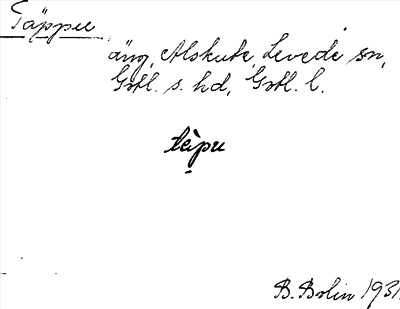 Täppu
äng, Alskute, Levede sn,
Gotl. s. hd, Gotl. l.
tàpu
B. Bolin 1931.